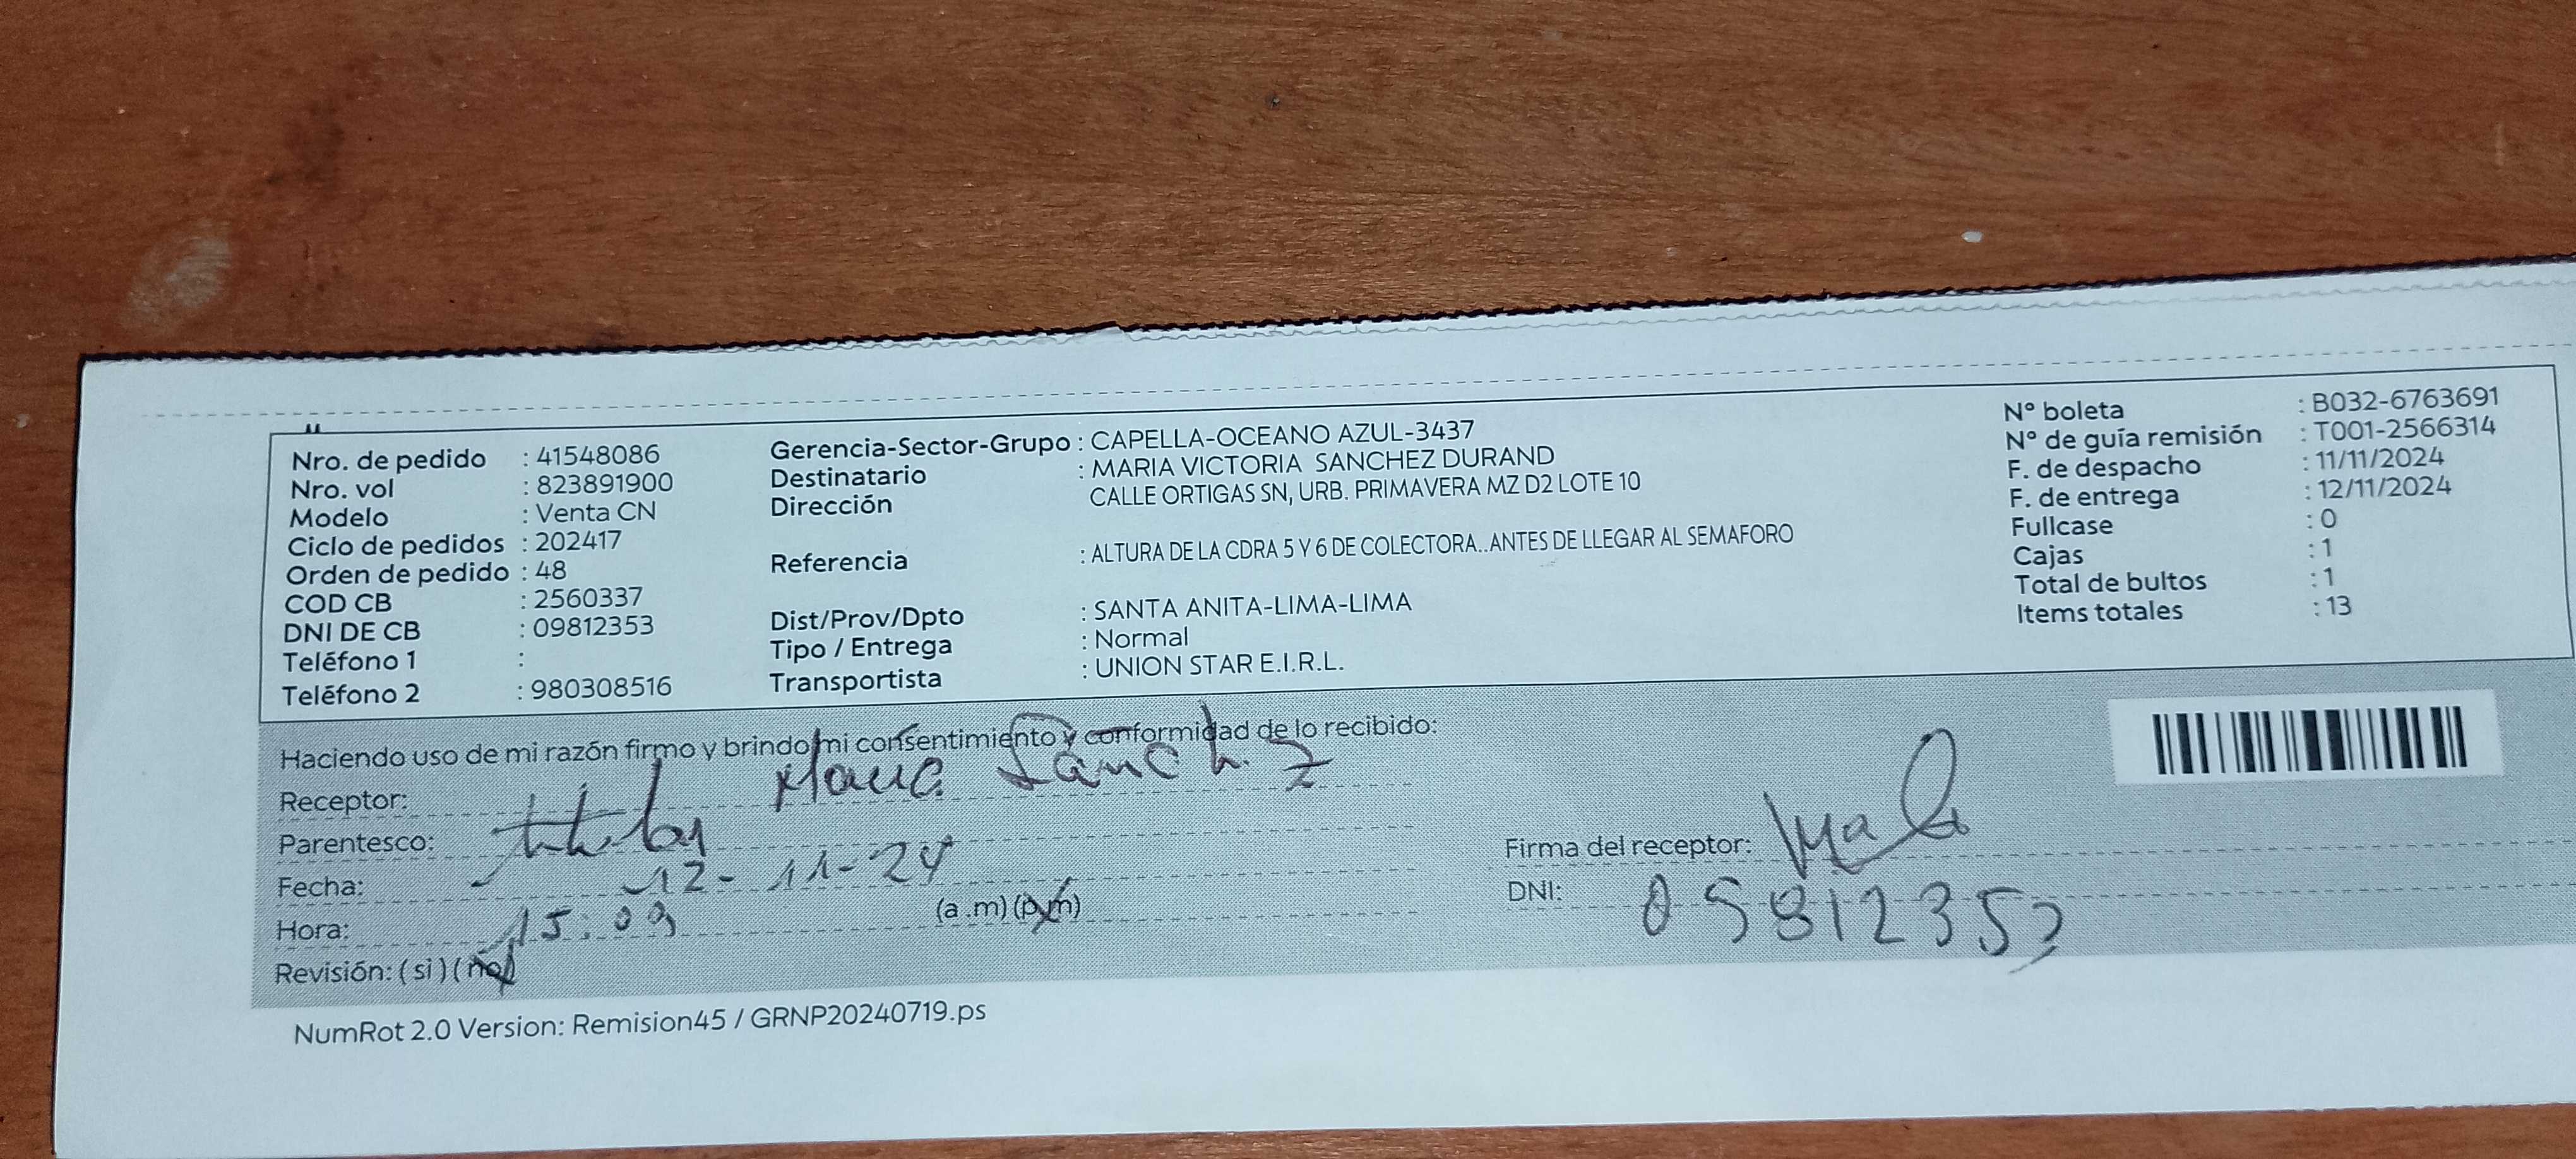 Nro. de pedido : 41548086
Nro. vol : 823891900
Modelo : Venta CN
Ciclo de pedidos : 202417
Orden de pedido : 48
COD CB : 2560337
DNI DE CB : 09812353
Teléfono 1 :
Teléfono 2 : 980308516
Gerencia-Sector-Grupo : CAPELLA-OCEANO AZUL-3437
Destinatario : MARIA VICTORIA SANCHEZ DURAND
Dirección CALLE ORTIGAS SN, URB. PRIMAVERA MZ D2 LOTE 10
Referencia : ALTURA DE LA CDRA 5 Y 6 DE COLECTORA..ANTES DE LLEGAR AL SEMAFORO
Dist/Prov/Dpto : SANTA ANITA-LIMA-LIMA
Tipo / Entrega : Normal
Transportista : UNION STAR E.I.R.L.
N° boleta : B032-6763691
N° de guía remisión : T001-2566314
F. de despacho : 11/11/2024
F. de entrega : 12/11/2024
Fullcase : 0
Cajas : 1
Total de bultos : 1
Items totales : 13
Haciendo uso de mi razón firmo y brindo mi consentimiento y conformidad de lo recibido:
Receptor: Maria Sanchez
Parentesco: titular
Fecha: 12-11-24
Hora: 15:09 (a.m) (p.m)
Revisión: (si) (no)
Firma del receptor:
DNI: 09812353
NumRot 2.0 Version: Remision45 / GRNP20240719.ps